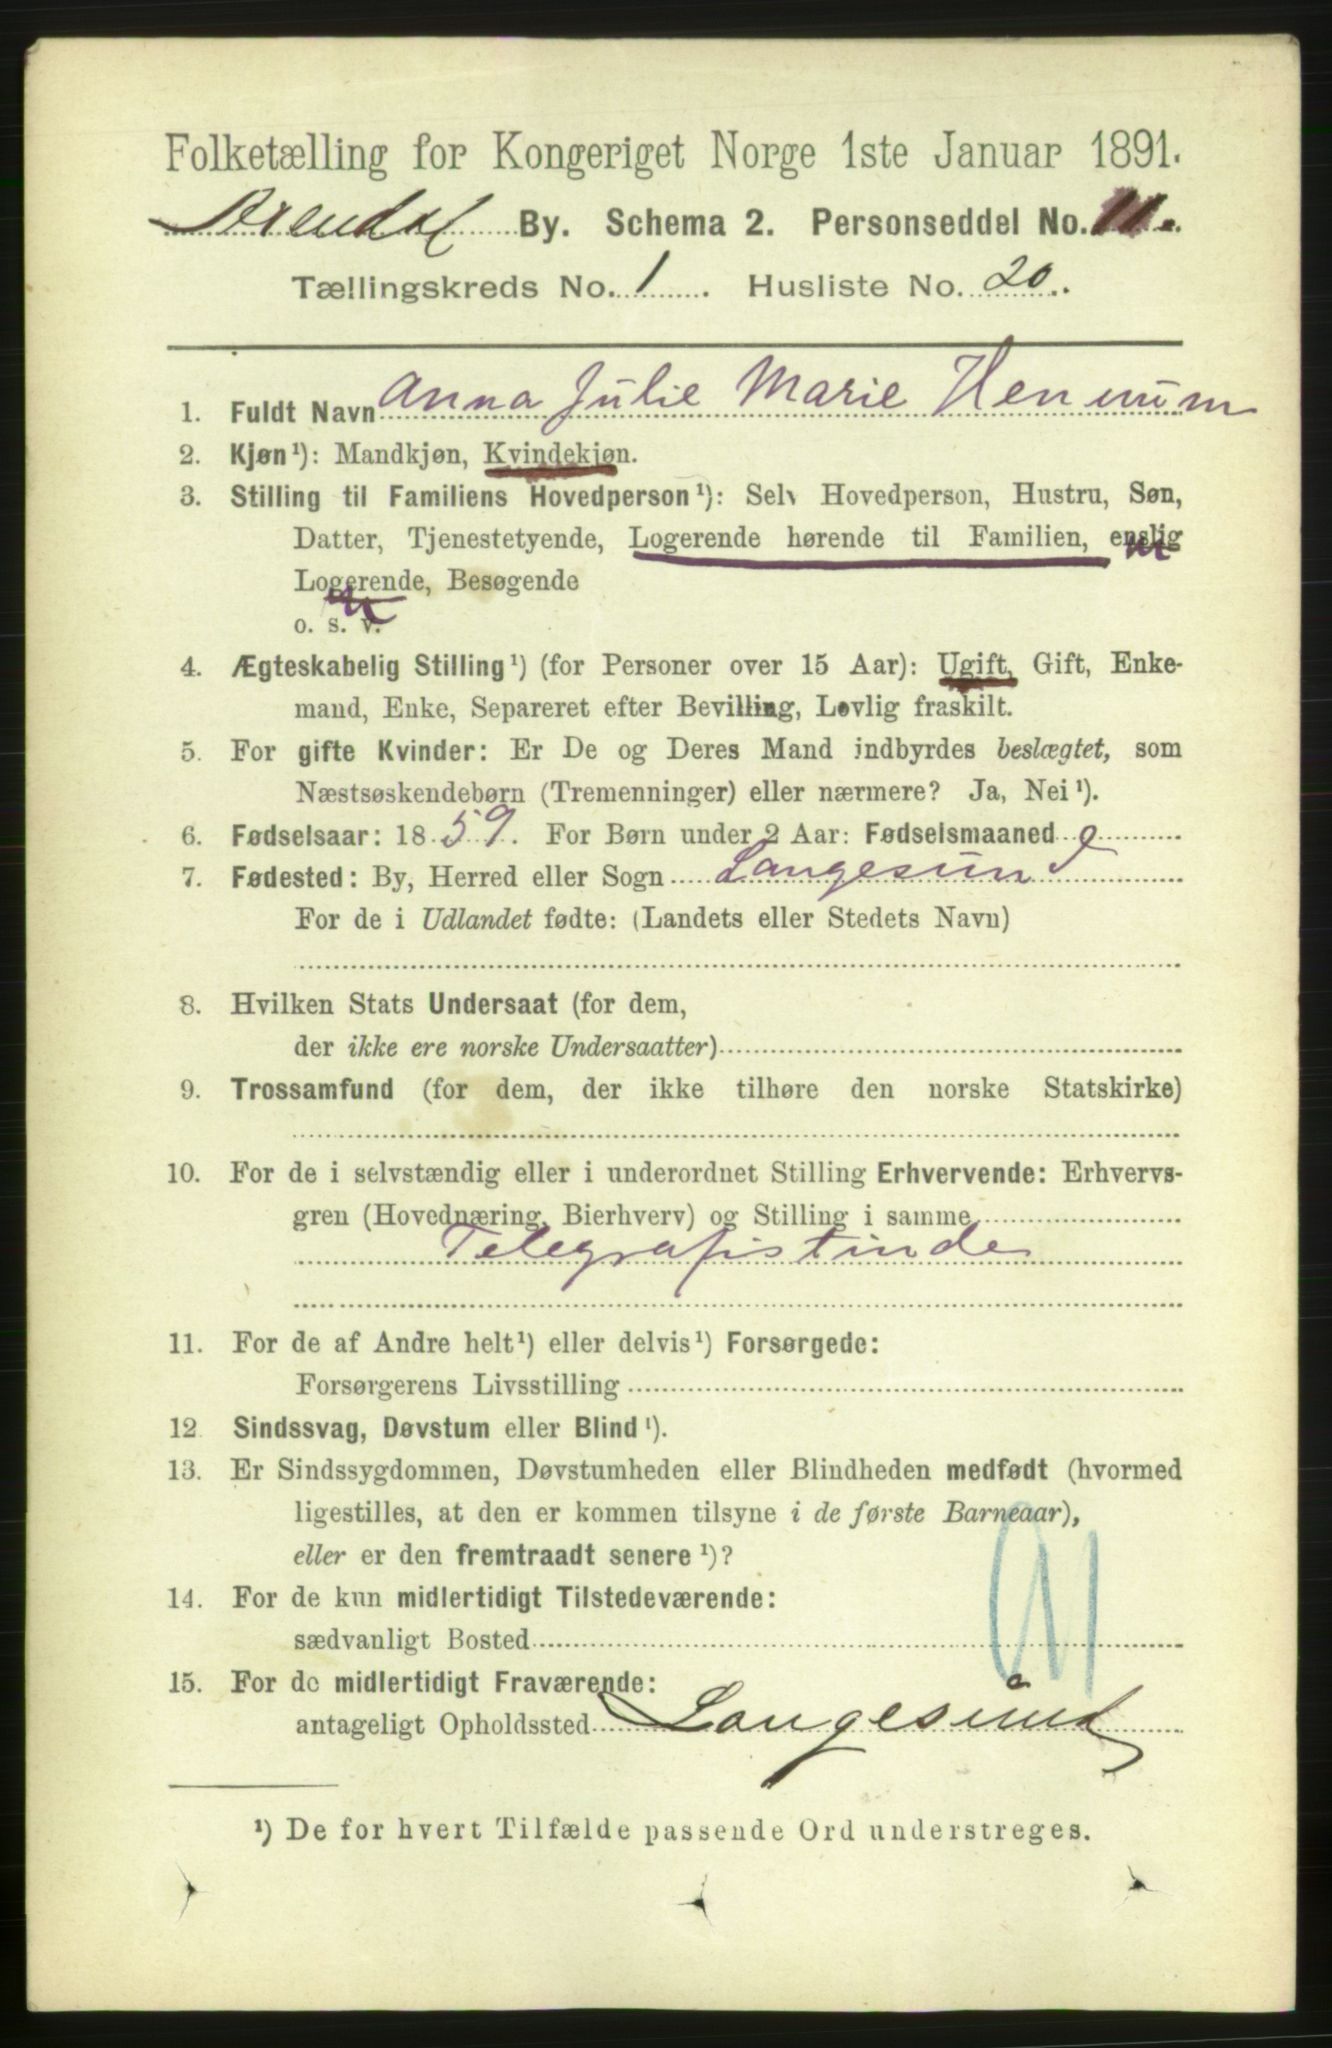 Folketælling for Kongeriget Norge 1ste Januar 1891.
Arendal By. Schema 2. Personseddel No. 11.
Tællingskreds No. 1. Husliste No. 20.
1. Fuldt Navn Anna Julie Marie Hennum
2. Kjøn¹): Mandkjøn, Kvindekjøn.
3. Stilling til Familiens Hovedperson¹): Selv Hovedperson, Hustru, Søn,
Datter, Tjenestetyende, Logerende hørende til Familien, enslig
Logerende, Besøgende
o. s. v.
4. Ægteskabelig Stilling¹) (for Personer over 15 Aar): Ugift, Gift, Enke-
mand, Enke, Separeret efter Bevilling, Lovlig fraskilt.
5. For gifte Kvinder: Er De og Deres Mand indbyrdes beslægtet, som
Næstsøskendebørn (Tremenninger) eller nærmere? Ja, Nei¹).
6. Fødselsaar: 1859. For Børn under 2 Aar: Fødselsmaaned
7. Fødested: By, Herred eller Sogn Langesund
For de i Udlandet fødte: (Landets eller Stedets Navn)
8. Hvilken Stats Undersaat (for dem,
der ikke ere norske Undersaatter)
9. Trossamfund (for dem, der ikke tilhøre den norske Statskirke)
10. For de i selvstændig eller i underordnet Stilling Erhvervende: Erhvervs-
gren (Hovednæring, Bierhverv) og Stilling i samme
Telegrafistinde
11. For de af Andre helt¹) eller delvis¹) Forsørgede:
Forsørgerens Livsstilling
12 Sindssvag, Døvstum eller Blind¹).
13. Er Sindssygdommen, Døvstumheden eller Blindheden medfødt (hvormed
ligestilles, at den er kommen tilsyne i de første Barneaar),
eller er den fremtraadt senere¹)?
14. For de kun midlertidigt Tilstedeværende:
sædvanligt Bosted
15. For de midlertidigt Fraværende:
antageligt Opholdssted Langesund
¹) De for hvert Tilfælde passende Ord understreges.